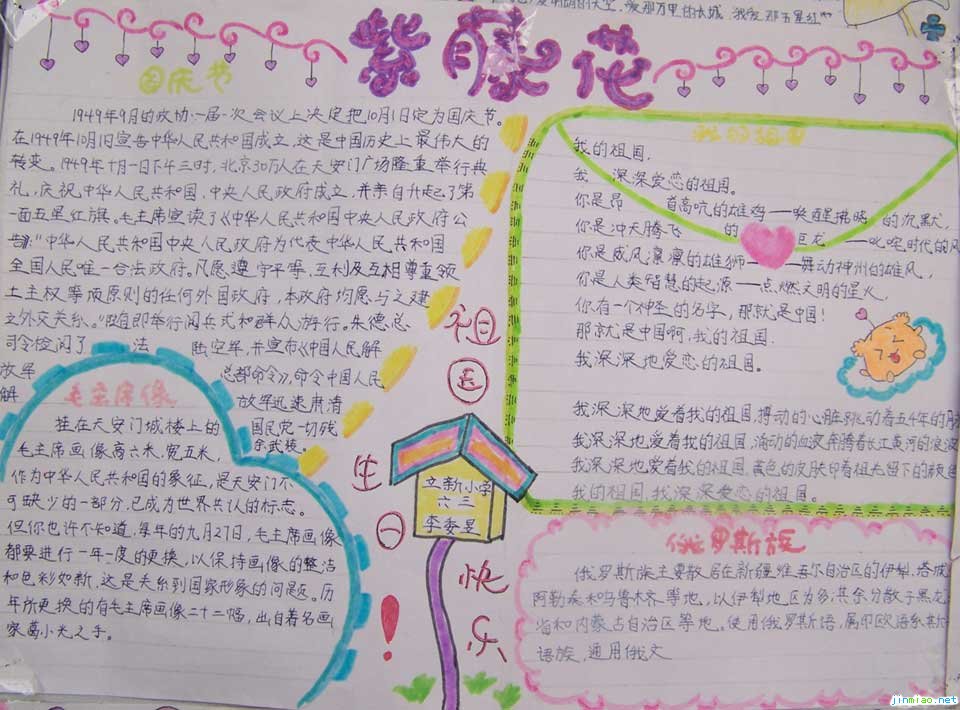 紫藤花
国庆节
1949年9月的政协一届一次会议上决定把10月1日定为国庆节。
在1949年10月1日宣告中华人民共和国成立,这是中国历史上最伟大的
转变。1949年十月一日下午三时,北京30万人在天安门广场隆重举行典
礼,庆祝中华人民共和国,中央人民政府成立,并亲自升起了第
一面五星红旗。毛主席宣读了《中华人民共和国中央人民政府公
告》:"中华人民共和国中央人民政府为代表中华人民共和国
全国人民唯一合法政府。凡愿遵守平等,互利及互相尊重领
土主权等项原则的任何外国政府,本政府均愿与之建
之外交关系。"随即举行阅兵式和群众游行。朱德总
司令检阅了 法 陆空军,并宣布《中国人民解
放军 总部命令》,命令中国人民
解 放军迅速肃清
国民党一切残
余武装。
毛主席像
挂在天安门城楼上的
毛主席画像高六米,宽五米,
作为中华人民共和国的象征,是天安门不
可缺少的一部分,已成为世界共认的标志。
但你也许不知道,每年的九月27日,毛主席画像
都要进行一年一度的更换,以保持画像的整洁
和色彩如新,这是关系到国家形象的问题。历
年所更换的有毛主席画像二十二幅,出自着名画
家葛小光之手。
祖
国
生
日
快
乐
!
立新小学
六三
我的祖国
我的祖国,
我 深深爱恋的祖国。
你是昂 首高吭的雄鸡——唤醒拂晓 的沉默,
你是冲天腾飞 的 巨龙——叱咤时代的风
你是威风凛凛的雄狮——舞动神州的雄风,
你是人类智慧的起源——点燃文明的星火,
你有一个神圣的名字,那就是中国!
那就是中国啊,我的祖国.
我深深地爱恋的祖国。
我深深地爱着我的祖国,搏动的心脏跳动着五千年的
我深深地爱着我的祖国,涌动的血液奔腾着长江黄河的浪波
我深深地爱着我的祖国,黄色的皮肤印着祖先留下的颜色
我的祖国,我深深爱恋的祖国。
俄罗斯族
俄罗斯族主要散居在新疆维吾尔自治区的伊犁,塔城
阿勒泰和乌鲁木齐等地,以伊犁地区为多;其余分散于黑龙
省和内蒙古自治区等地。使用俄罗斯语,属印欧语系斯
语族,通用俄文
jinmiao.net